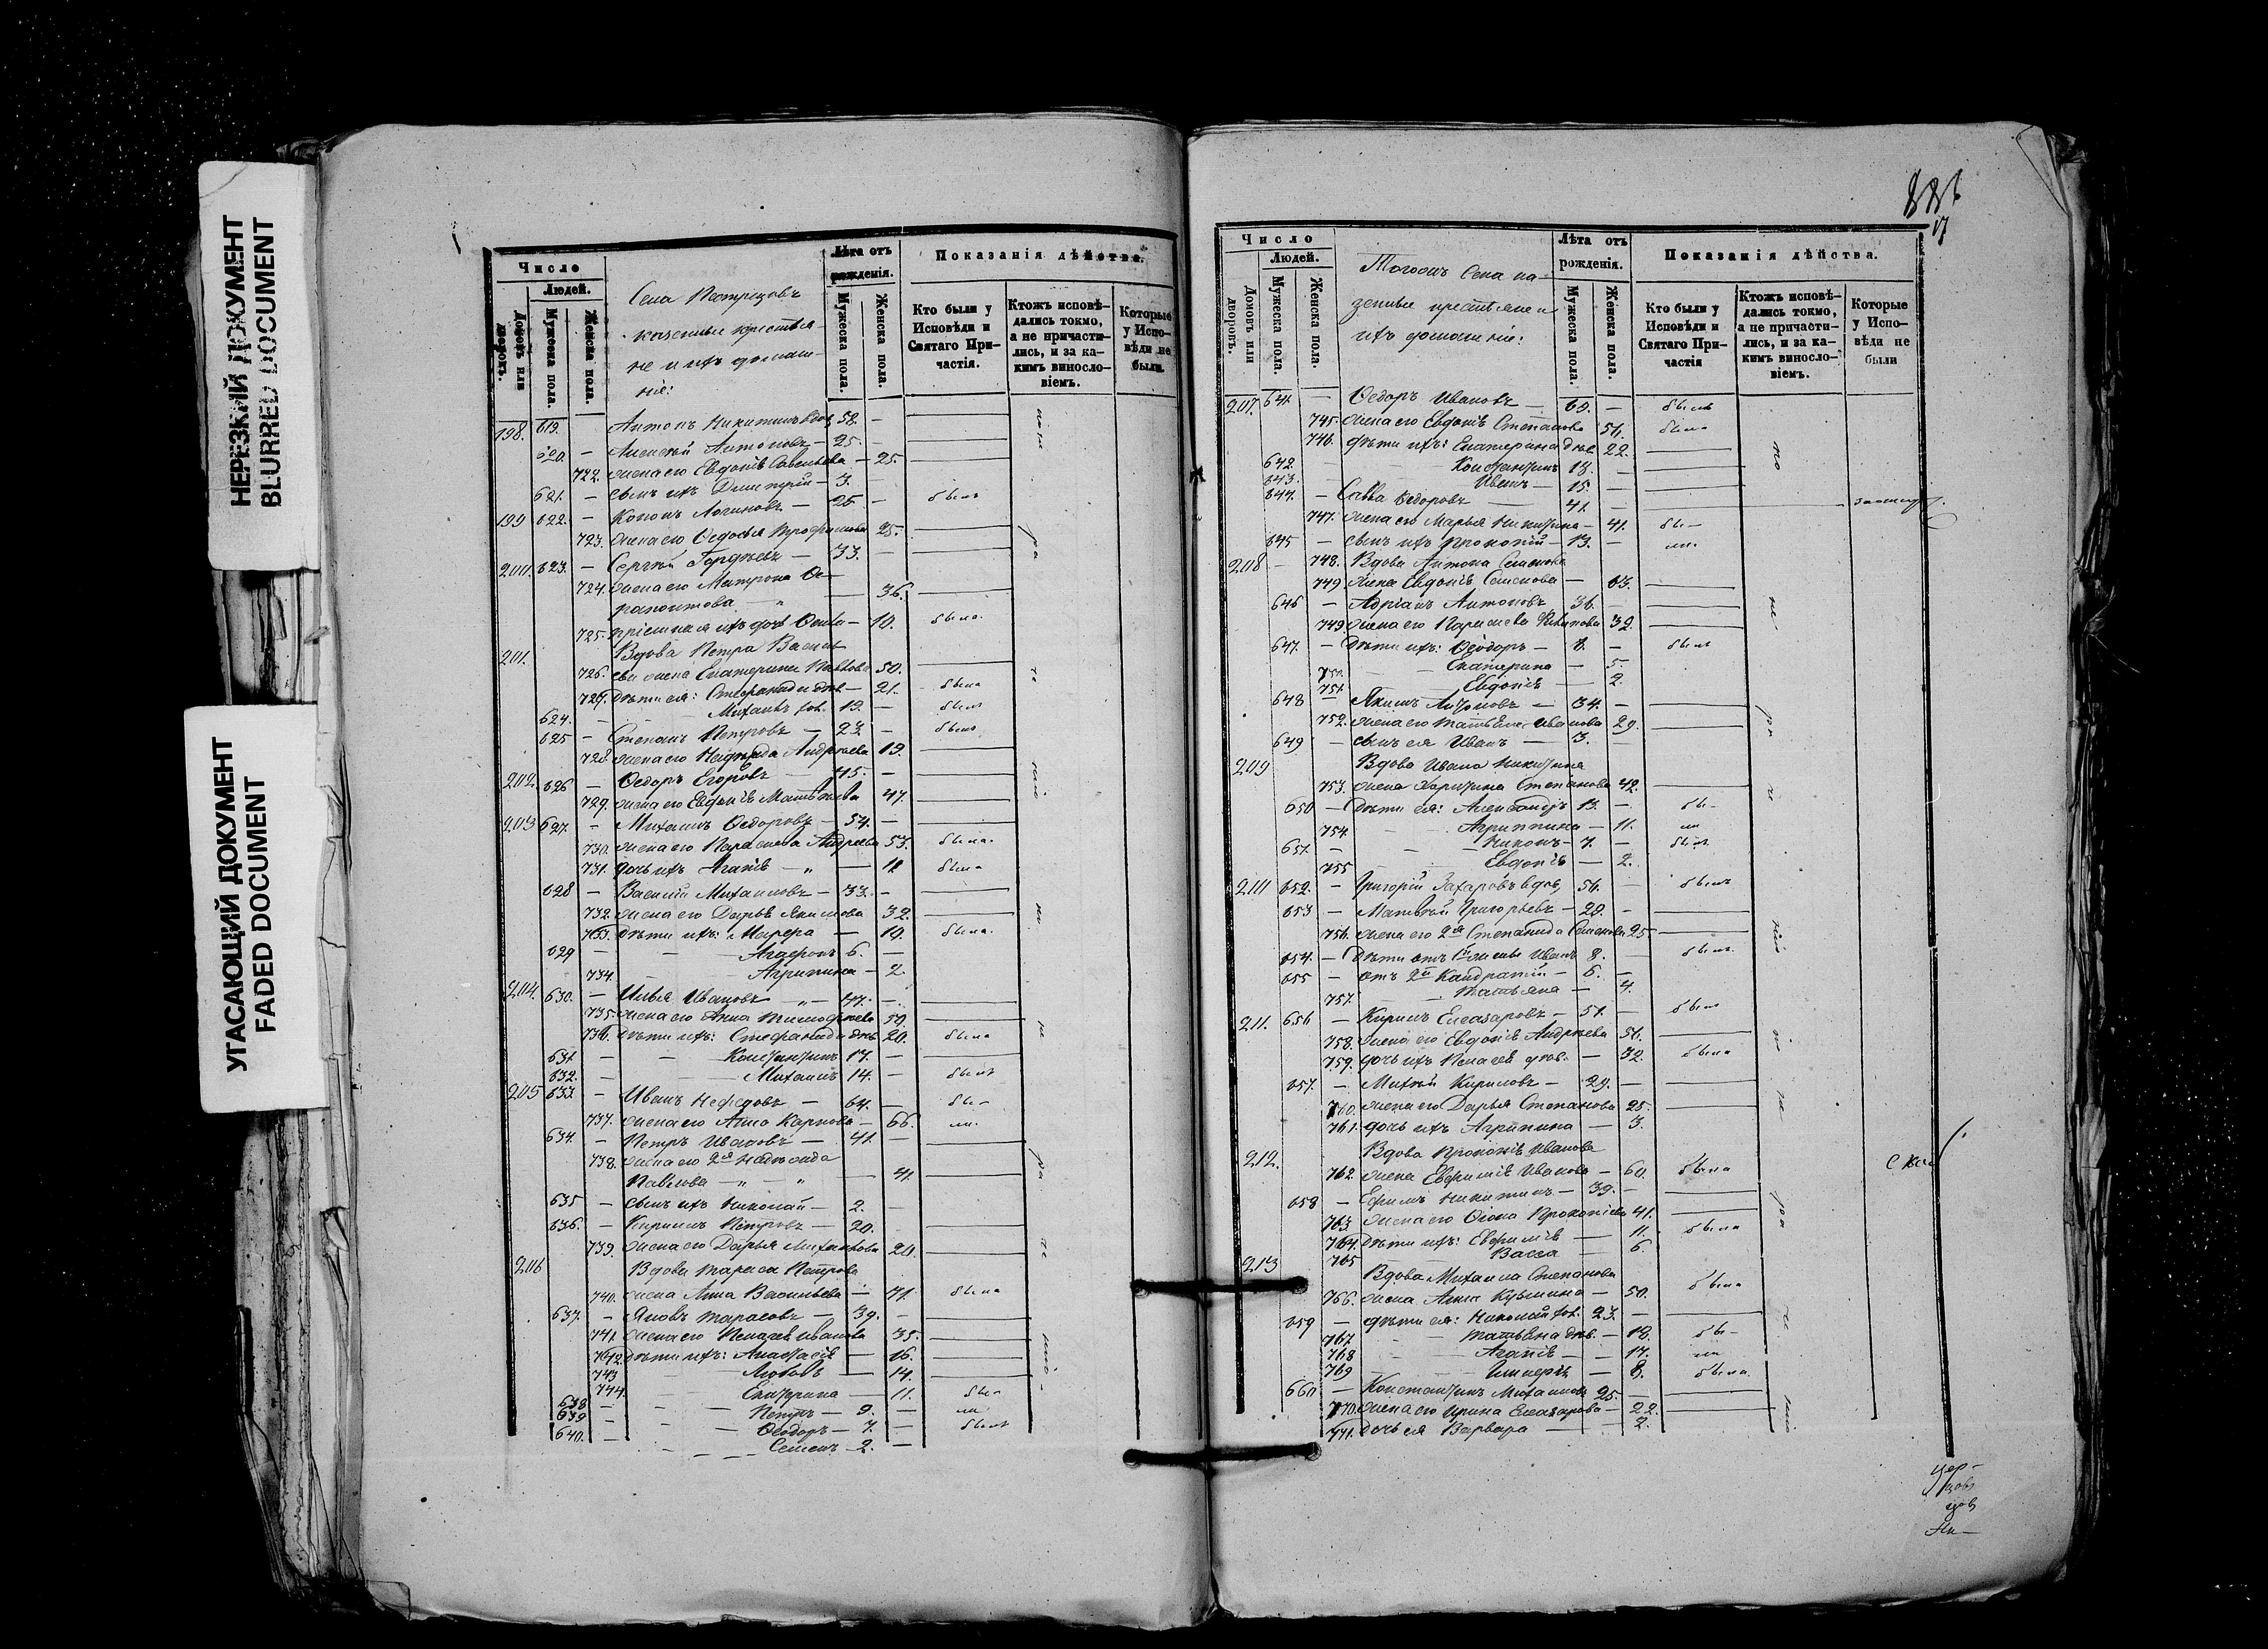 НЕРЕЗКИЙ ДОКУМЕНТ
BLURRED DOCUMENT
УГАСАЮЩИЙ ДОКУМЕНТ
FADED DOCUMENT
Число
Людей.
Домовъ или дворовъ.
Мужеска пола.
Женска пола.
казенные крестья-
не и ихъ домаш-
ніе:
Лѣта отъ
рожденія.
Мужеска пола.
Женска пола.
Показанія дѣйства.
Кто были у
Исповѣди и
Святаго При-
частія.
Ктожъ исповѣ-
дались токмо,
а не причасти-
лись, и за ка-
кимъ винослo-
віемъ.
Которые
у Испо-
вѣди не
были.
198. 619. Антонъ Никитинъ вдов 58. —
620. — Алексѣй Антоновъ — 25. —
722. жена его Евдокія Савельева — 25.
621. — сынъ ихъ Димитрій — 3. —
199 622. — Кононъ Логиновъ — 25. — былъ
723. жена его Федосья Трофимова 25.
200. 623. — Сергѣй Гордѣевъ — 33. —
724. жена его Матрона
36.
725. 10. была.
201. Вдова Петра Василь
726. ева жена Екатерина Павлова 50.
727. дѣти ея: Стефанида дѣв. — 21. — была
624. — Михаилъ хол. 19. — былъ
625 — Степанъ Петровъ — 23. — былъ
728 жена его Андреева 19.
202. 626 — Ѳедоръ Егоровъ — 45. —
729. жена его Евдокія Матвѣева 47.
203 627. — Михаилъ Ѳедоровъ — 54. —
730. жена его Параскева Андреева 53. была.
731. дочь ихъ Агапія — „ — 12 была
628 — Василій Михайловъ — 33. —
732. жена его Дарья Якимова 32.
733. дѣти ихъ: — 10. была.
629 — Агафонъ 6. —
734. Агрипина — 2.
204. 630. — Илья Ивановъ 47. —
735. жена его Анна Тимофѣева 50.
736. дѣти ихъ: Стефанида дѣв. 20. была
631. — Константинъ 17. —
632. — Михаилъ 14. — былъ
205 633. — Иванъ Нефедовъ — 64. — бы-
737. жена его Анна Карпова — 66. ли.
634. — Петръ Ивановъ — 41. —
738. жена его 2я Надежда
Павлова — „ — „ — 41.
635 — сынъ ихъ Николай — 2. —
636. — Кирилъ Петровъ — 20. —
739. жена его Дарья Михайлова 20.
206 Вдова Тараса Петрова
740. жена Анна Васильева — 71. была
637. — Яковъ Тарасовъ — 39. —
741. жена его Пелагея Иванова 35.
742. дѣти ихъ: Анастасія — 16.
743 Любовь — 14.
744. Екатерина — 11. бы-
638 — Петръ — 9. — ли
639 — Ѳеодоръ — 7. — былъ
640. — Семенъ — 2. —
Число
Людей.
Домовъ или дворовъ.
Мужеска пола.
Женска пола.
Тогожъ села ка-
зенные крестьяне и
ихъ домашніе:
Лѣта отъ
рожденія.
Мужеска пола.
Женска пола.
Показанія дѣйства.
Кто были у
Исповѣди и
Святаго При-
частія
Ктожъ исповѣ-
дались токмо,
а не причасти-
лись, и за ка-
кимъ винослo-
віемъ.
Которые
у Испо-
вѣди не
были
207. 641. — Ѳедоръ Ивановъ — 60. — былъ
745. жена его Евдокія Степанова 56. была
746. дѣти ихъ: Екатерина дѣв. 22.
642. Константинъ 18. —
643. Иванъ — 15. —
644. — Савва Ѳедоровъ — 41. —
747. жена его Марья Никитина — 41. бы-
645 — сынъ ихъ Прокопій — 13. — ли.
208 — 748. Вдова Антона Семенова
749 жена Евдокія Семенова — 63.
646 — Адріанъ Антоновъ 36.
749. жена его Параскева 32.
647. — Дѣти ихъ: Ѳеодоръ — 8. — былъ
750. Екатерина — 5.
751. Евдокія — 2.
648 — Якимъ Антоновъ — 34. —
752. жена его Татьяна Иванова 29.
649 — сынъ ея Иванъ — 3. —
209 Вдова Ивана Никитина
753. жена Харитина Степанова 42.
650 — Дѣти ея: Александръ 13. — бы-
754. Агриппина — 11. ли
651. — Никонъ — 7. — былъ
755 Евдокія — 2.
210 652. — Григорій Захаровъ вдов. 56. — былъ
653 — Матвѣй Григорьевъ — 29. —
756. жена его 2я Степанида Семенова 25 —
654. — Дѣти отъ 1й жены Иванъ 8. — былъ
655 — отъ 2й Кандратій — 6. —
757. Татьяна — 4.
211. 656 — Кирилъ Елеазаровъ — 51. — былъ
758. жена его Евдокія Андрѣева 56.
759. дочь ихъ Пелагея дѣв. — 32. была
657. — Михѣй Кириловъ — 29. —
760. жена его Дарья Степанова 25.
761. дочь ихъ Агрипина — 3.
212. Вдова Прокопія Иванова
762. жена Евфимія Иванова — 60. была
658 — Ефимъ Никитинъ — 39. —
763. жена его Прокопіева 41.
764. Дѣти ихъ: Евфимія — 11. была
765 Васса — 6.
213 Вдова Михаила Степанова
766. жена Анна Кузьмина — 50. была
659 — дѣти ея: Николай хол. 23. —
767 Татьяна дѣв. — 18. бы-
768 Агапія — 14. ли
769 Гликерія — 8. была
660 — Константинъ Михайловъ 25. —
770. жена его Ирина Елеазарова — 22.
771. дочь ея Варвара — 2.